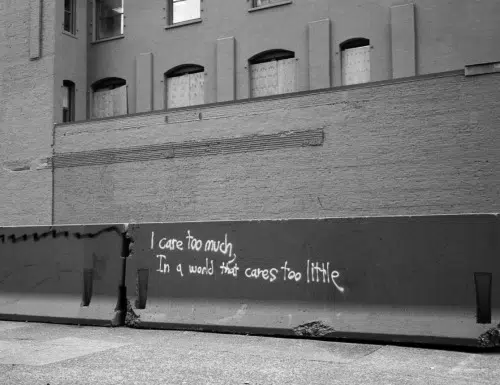 I care too much,
In a world that cares too little